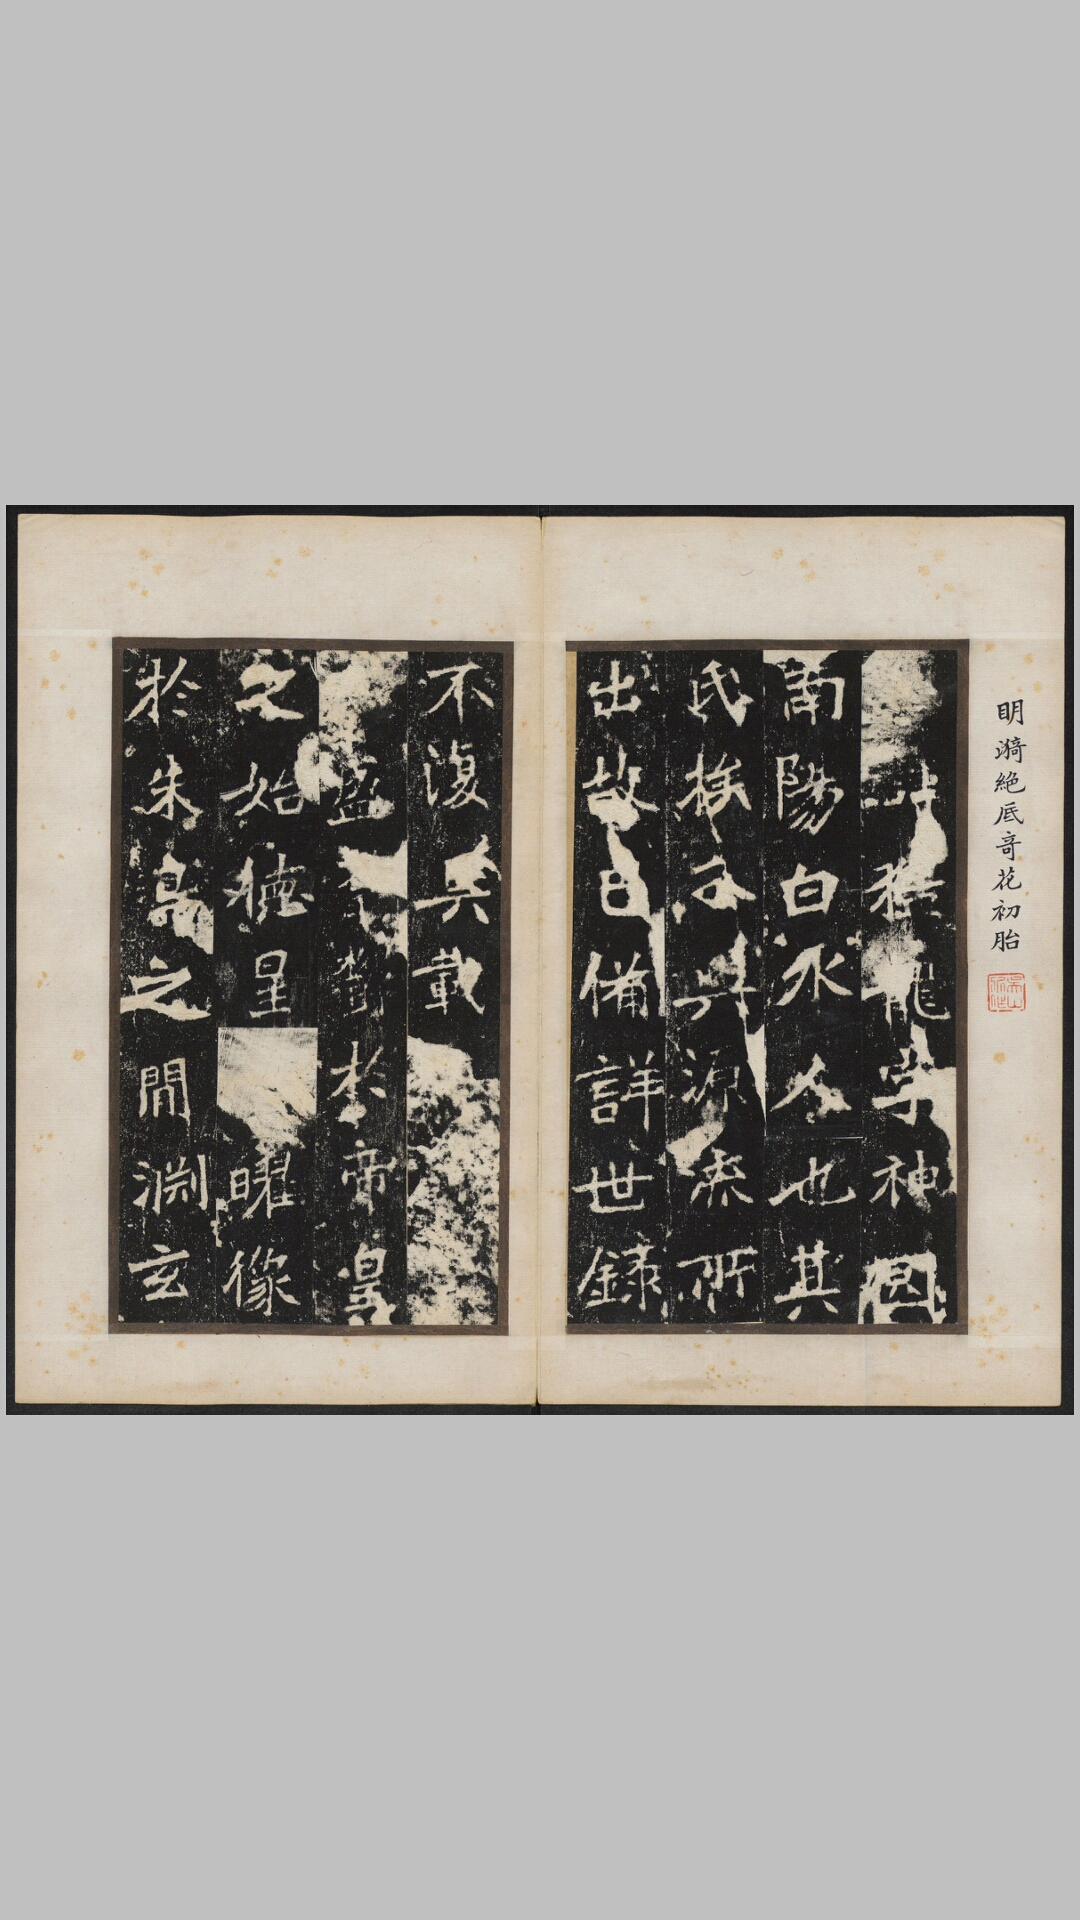 明漪絕底奇花初胎
猛龍字神冏
南陽白水人也其
氏族分興源流所
出故已備詳世錄
不復具載
盈樹於帝皇
之始德星曜像
於朱鳥之閒淵玄